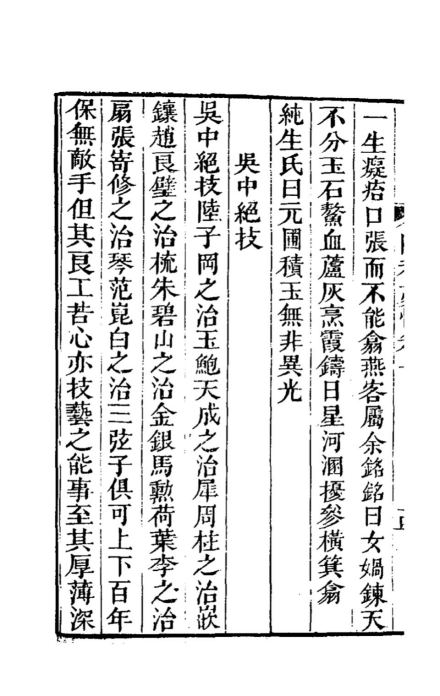 一生癡痞口張而不能翕燕客屬余銘銘曰女媧鍊天
不分玉石鰲血蘆灰烹霞鑄日星河溷擾參橫箕翕
純生氏曰元圃積玉無非異光
吳中絕技
吳中絕技陸子岡之治玉鮑天成之治犀周柱之治嵌
鑲趙良璧之治梳朱碧山之治金銀馬勲荷葉李之治
扇張寄修之治琴范崑白之治三弦子俱可上下百年
保無敵手但其良工苦心亦技藝之能事至其厚薄深